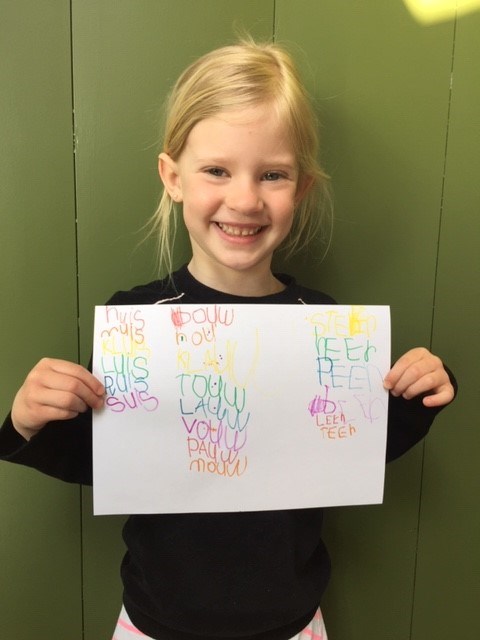 huis
muis
KLUIS
LUIS
RUIS
SUIS
bouw
hou
TOUW
LAUW
VOUW
PAUW
mouw
hEEr
PEER
LEEr
TEEr